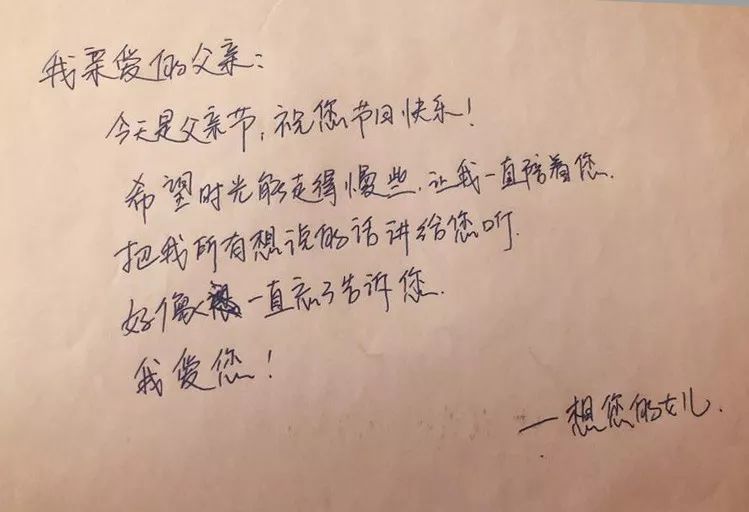 我亲爱的父亲：
今天是父亲节，祝您节日快乐！
希望时光能走得慢些，让我一直陪着您.
把我所有想说的话讲给您听.
好像一直忘了告诉您.
我爱您！
—想您的女儿.